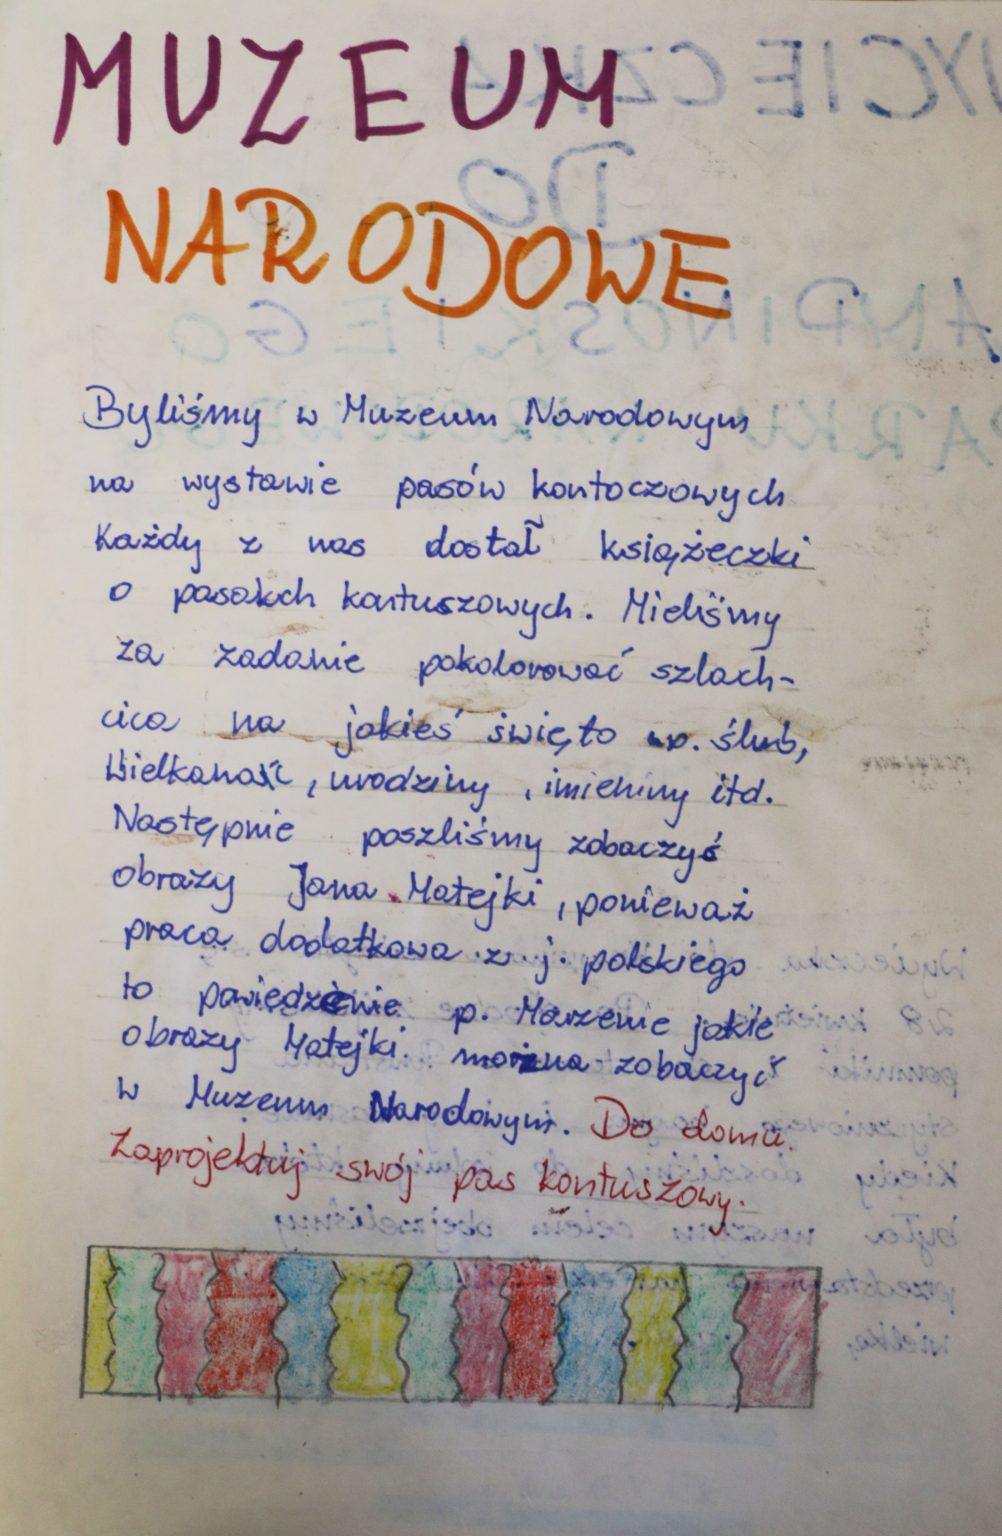 MUZEUM
NARODOWE
Byliśmy w Muzeum Narodowym
na wystawie pasów kontoczowych
Każdy z nas dostał książeczki
o pasakch kontuszowych. Mieliśmy
za zadanie pokolorować szlach-
cica na jakieś święto np. ślub,
Wielkaność, urodziny, imieniny itd.
Następnie poszliśmy zobaczyś
obrazy Jana Matejki, ponieważ
praca dodatkowa z j. polskiego
to powiedzenie p. Marzenie jakie
obrazy Matejki można zobaczyć
w Muzeum Narodowym. Do domu.
Zaprojektuj swój pas kontuszowy.